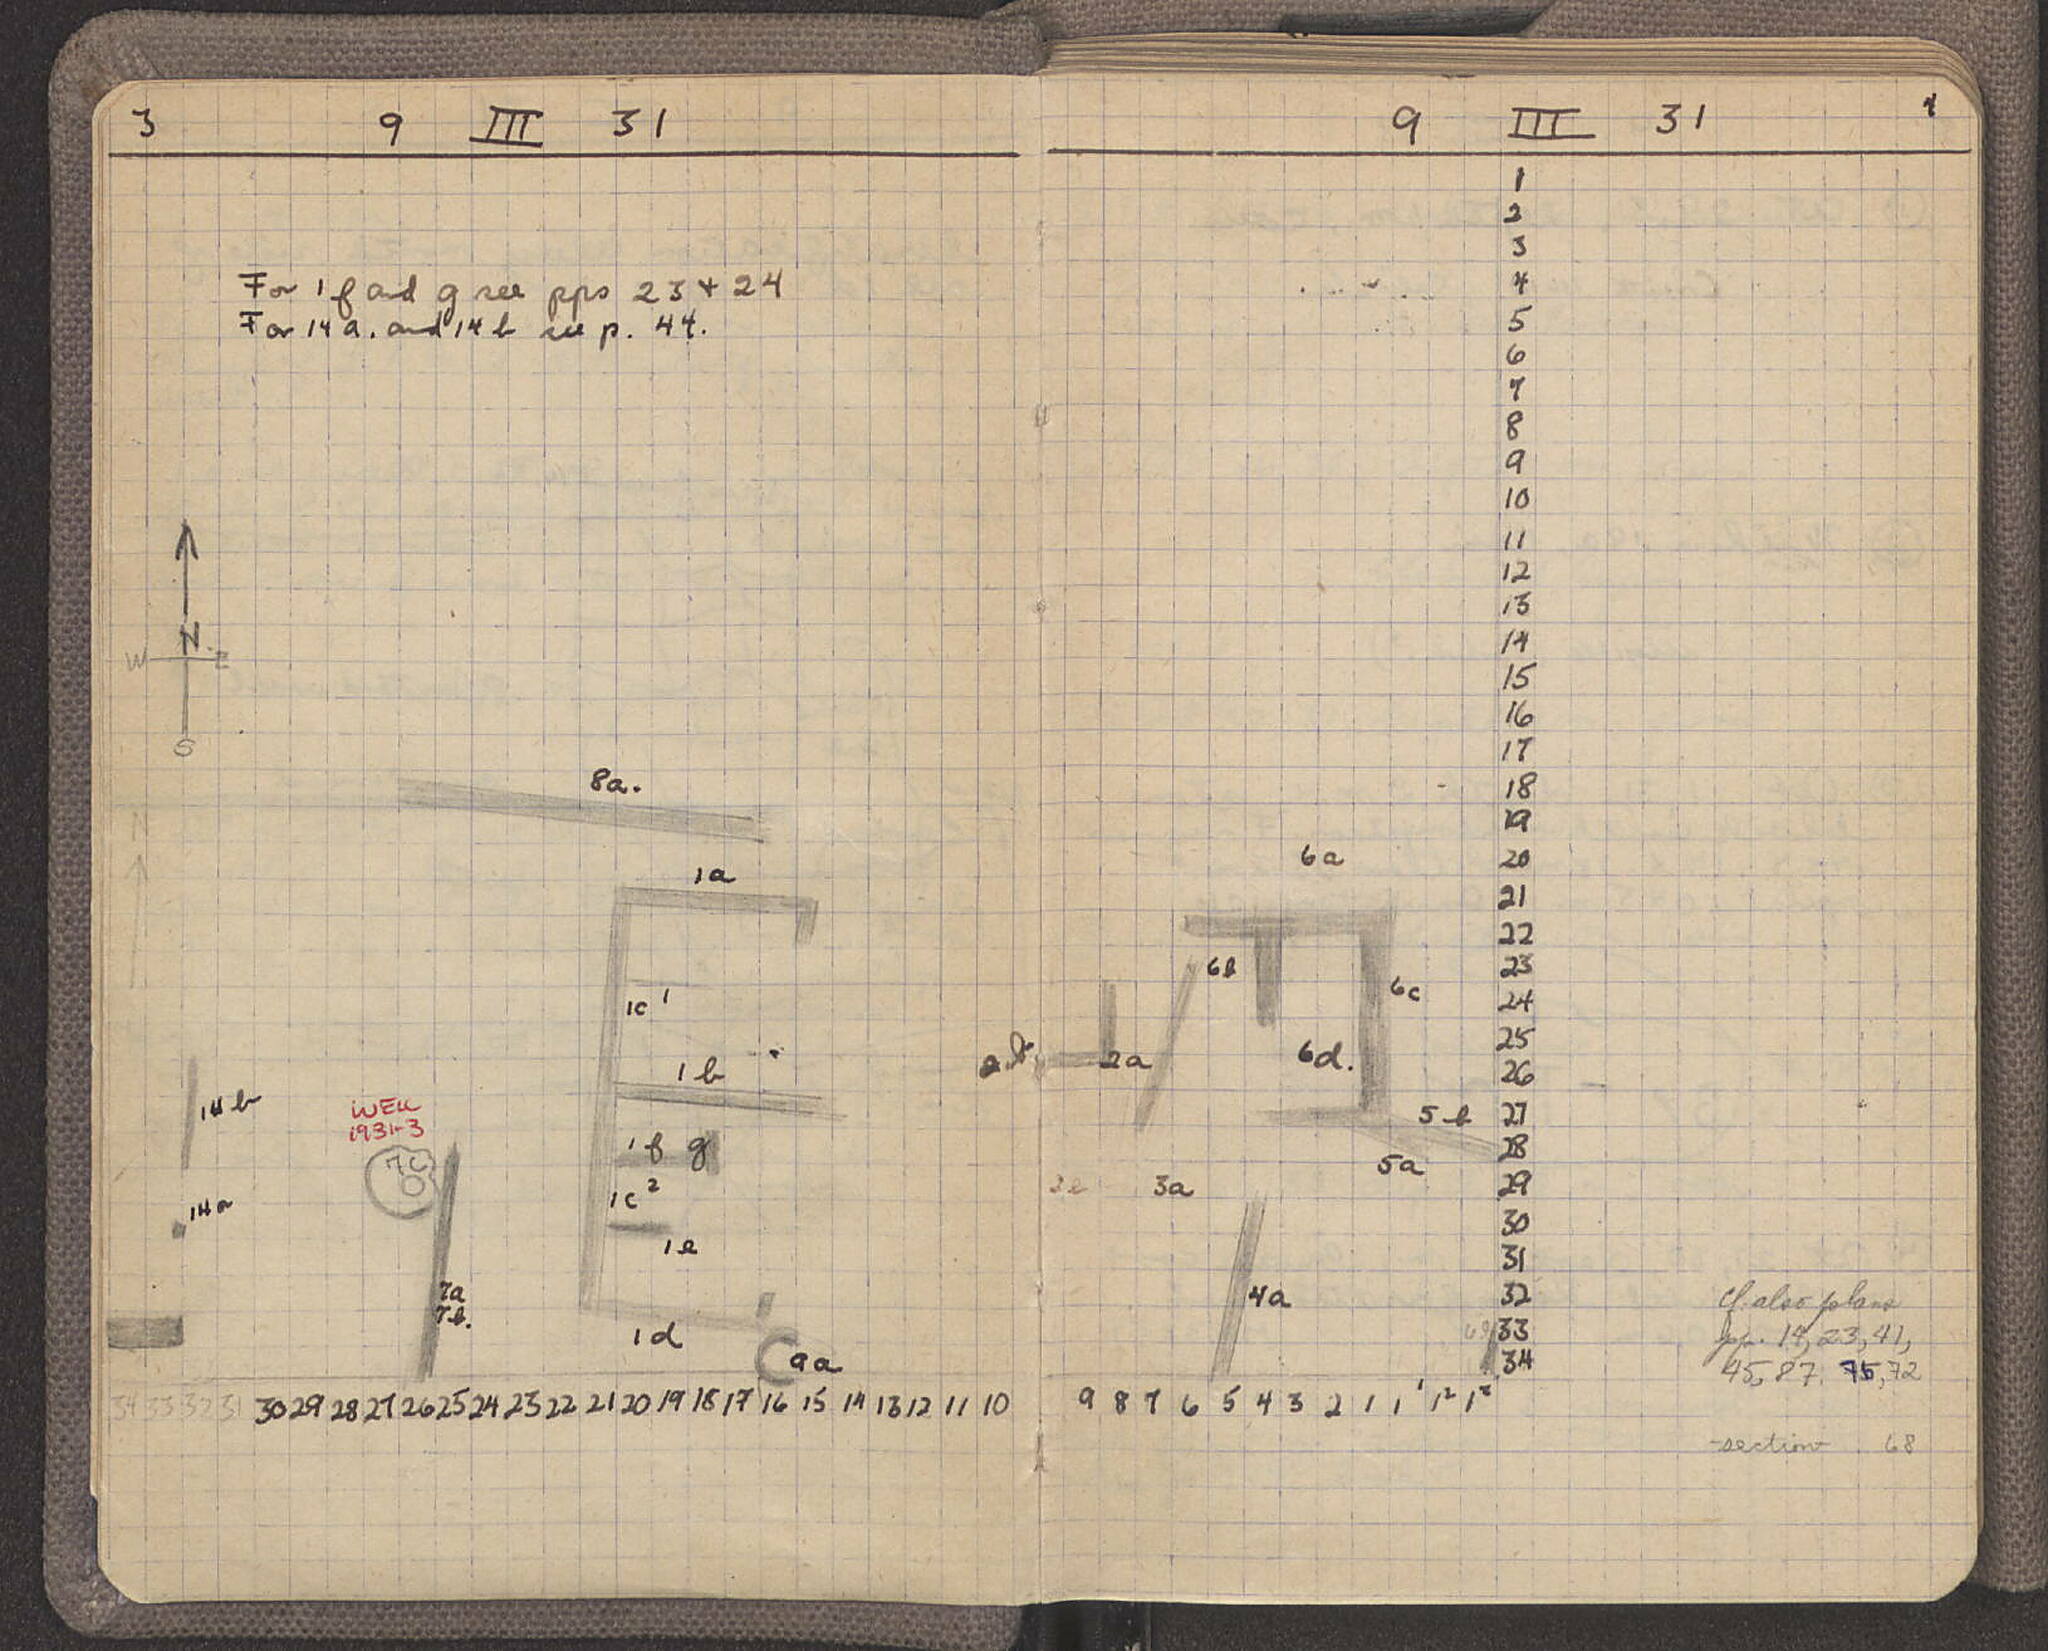 3 9 III 31
For 1f and g see pps 23 + 24
For 14a. and 14b see p. 44.
N
W E
S
8a.
N
1a
1c¹
1b
14b
WELL
1931-3
7c
1f g
1c²
14a
1e
7a
7b.
1d
9a
34 33 32 31 30 29 28 27 26 25 24 23 22 21 20 19 18 17 16 15 14 13 12 11 10
9 III 31
1
2
3
4
5
6
7
8
9
10
11
12
13
14
15
16
17
18
19
20
21
22
23
24
25
26
27
28
29
30
31
32
33
34
6a
6b
6c
2a
6d.
5b
5a
3a
4a
9 8 7 6 5 4 3 2 1 1¹ 1² 1³
cf. also plans
pp. 14, 23, 41,
45, 87. 75, 72
section 68